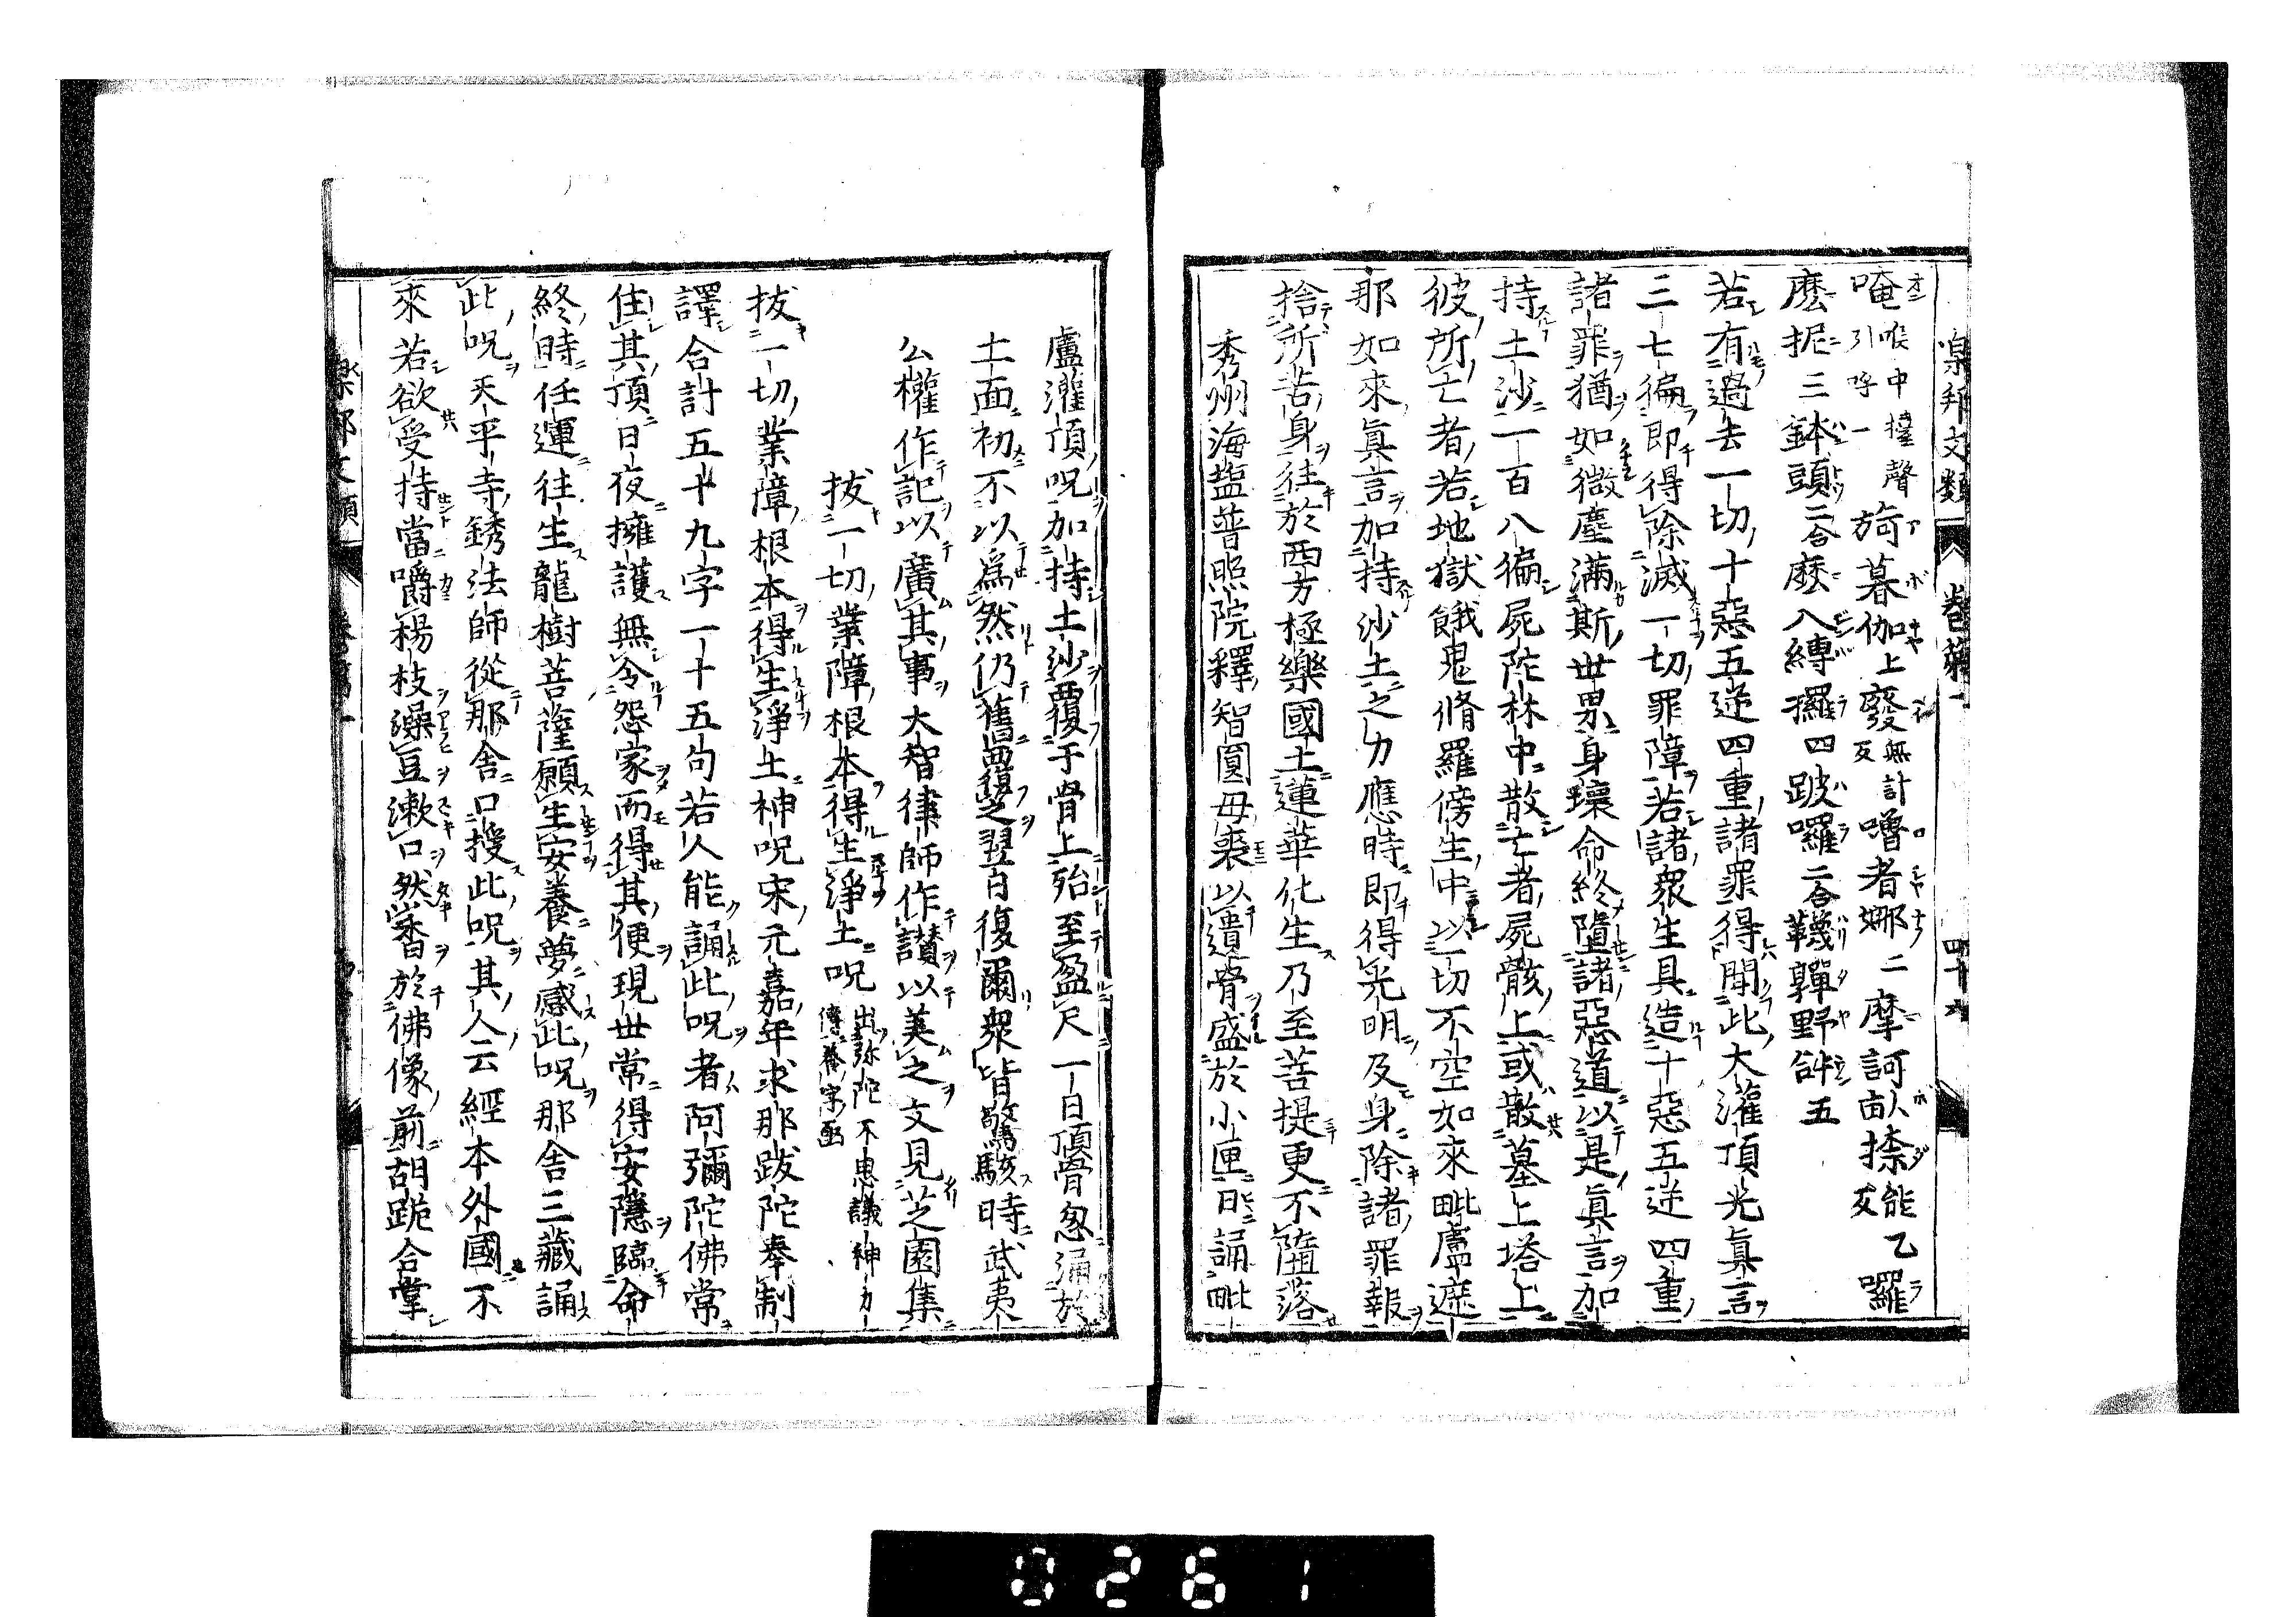 樂邦文類 卷第一 四十六
唵喉中擡聲引呼一旖暮伽上廢無計反嚕者娜二摩訶畝捺能乙反囉
麽抳三鉢頭二合麽入縛攞四跛囉二合韈嚲野𤙖五
若有過去一切十惡五逆四重諸罪得聞此大灌頂光眞言
三七徧即得除滅一切罪障若諸衆生具造十惡五逆四重
諸罪猶如微塵滿斯世界身壞命終墮諸惡道以是眞言加
持土沙一百八徧屍陀林中散亡者屍骸上或散墓上塔上
彼所亡者若地獄餓鬼脩羅傍生中以一切不空如來毗盧遮
那如來眞言加持沙土之力應時即得光明及身除諸罪報
捨所苦身往於西方極樂國土蓮華化生乃至菩提更不墮落
秀州海塩普照院釋智圓母喪以遺骨盛於小匣日誦毗
盧灌頂呪加持土沙覆于骨上殆至盈尺一日髑骨忽涌於
土面初不以爲然仍舊覆之翌日復爾衆皆驚駭時武夷
公權作記以廣其事大智律師作讃以美之文見芝園集
拔一切業障根本得生淨土呪出弥陀不思議神力傳養字函
拔一切業障根本得生淨土神呪宋元嘉年求那跋陀奉制
譯合計五十九字一十五句若人能誦此呪者阿彌陀佛常
住其頂日夜擁護無令怨家而得其便現世常得安隱臨命
終時任運往生龍樹菩薩願生安養夢感此呪那舍三藏誦
此呪天平寺銹法師從那舍口授此呪其人云經本外國不
來若欲受持當嚼楊枝澡豆漱口然香於佛像前胡跪合掌
樂邦文類
0261